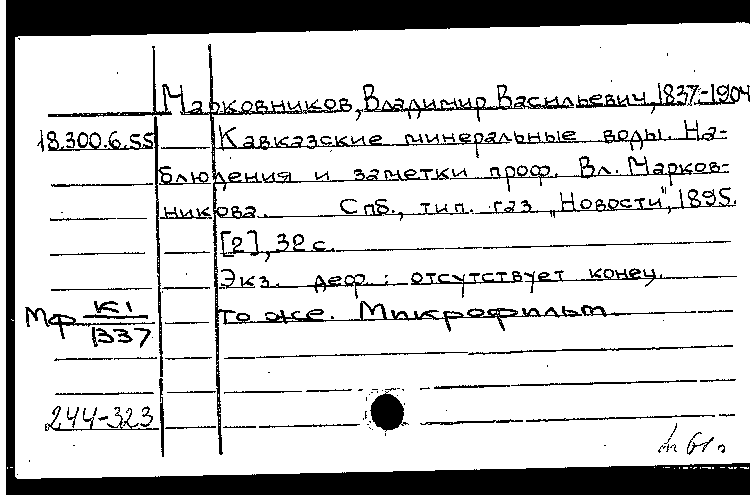 Марковников, Владимир Васильевич, 1837-1904
18.300.6.55 Кавказские минеральные воды. На-
блюдения и заметки проф. Вл. Марков-
никова. Спб., тип. газ. „Новости", 1895.
[2], 32 с.
Экз. деф.: отсутствует конец.
Мф К1/1337 То же. Микрофильм.
244-323